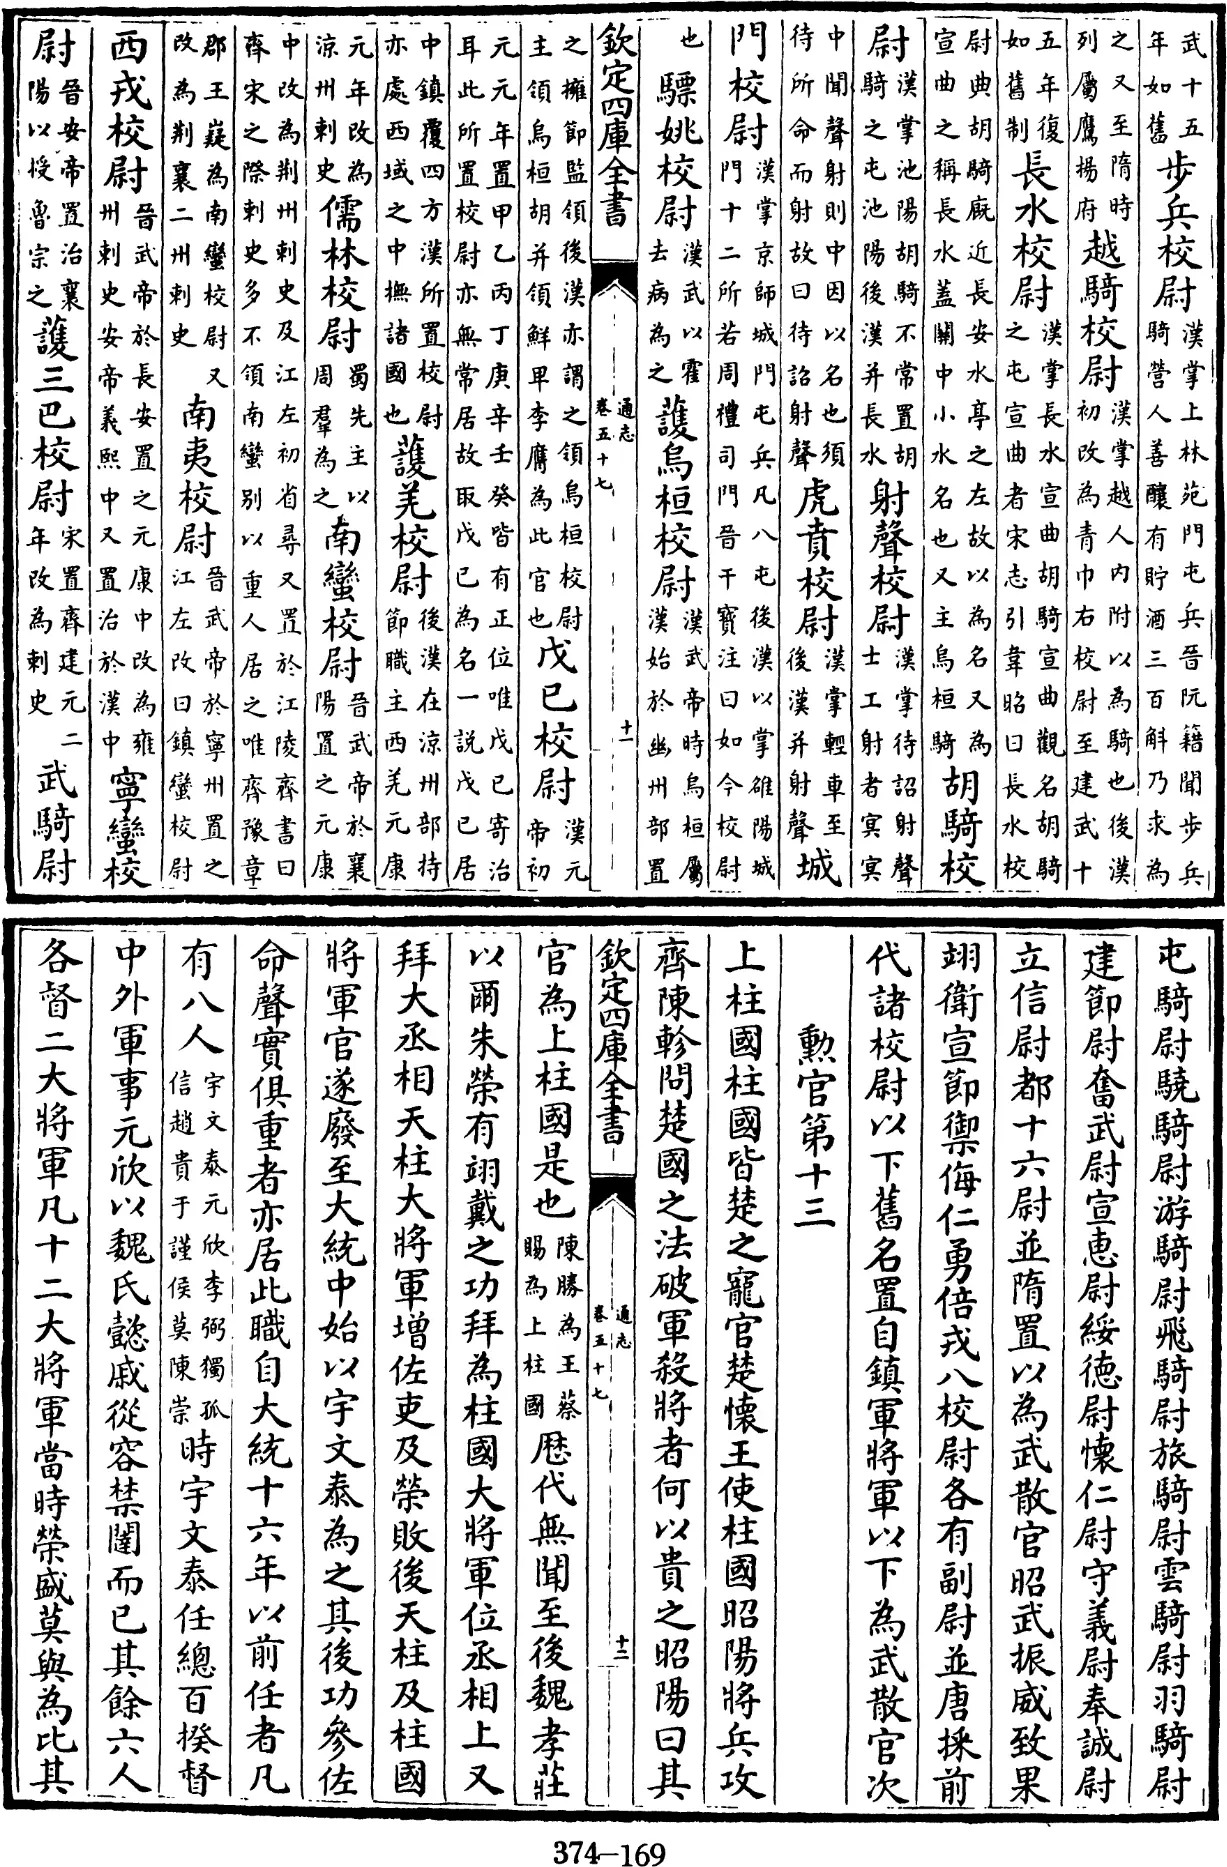 武十五年如舊步兵校尉漢掌上林苑門屯兵晉阮籍聞步兵騎營人善釀有貯酒三百斛乃求為
之又至隋時列屬鷹揚府越騎校尉漢掌越人内附以為騎也後漢初改為青巾右校尉至建武十
五年復如舊制長水校尉漢掌長水宣曲胡騎宣曲觀名胡騎之屯宣曲者宋志引韋昭曰長水校
尉典胡騎廐近長安水亭之左故以為名又為宣曲之稱長水蓋關中小水名也又主烏桓騎胡騎校
尉漢掌池陽胡騎不常置胡騎之屯池陽後漢并長水射聲校尉漢掌待詔射聲士工射者冥冥
中聞聲射則中因以名也須待所命而射故曰待詔射聲虎賁校尉漢掌輕車至後漢并射聲城
門校尉漢掌京師城門屯兵凡八屯後漢以掌雒陽城門十二所若周禮司門晉干寶注曰如今校尉
也驃姚校尉漢武以霍去病為之護烏桓校尉漢武帝時烏桓屬漢始於幽州部置
欽定四庫全書 通志卷五十七 十一
之擁節監領後漢亦謂之領烏桓校尉主領烏桓胡并領鮮卑李膺為此官也戊己校尉漢元帝初
元元年置甲乙丙丁庚辛壬癸皆有正位唯戊己寄治耳此所置校尉亦無常居故取戊己為名一説戊己居
中鎮覆四方漢所置校尉亦處西域之中撫諸國也護羌校尉後漢在涼州部持節職主西羌元康
元年改為涼州刺史儒林校尉蜀先主以周羣為之南蠻校尉晉武帝於襄陽置之元康
中改為荆州刺史及江左初省尋又置於江陵齊書曰齊宋之際刺史多不領南蠻别以重人居之唯齊豫章
郡王嶷為南蠻校尉又改為荆襄二州刺史南夷校尉晉武帝於寧州置之江左改曰鎮蠻校尉
西戎校尉晉武帝於長安置之元康中改為雍州刺史安帝義熙中又置治於漢中寧蠻校
尉晉安帝置治襄陽以授魯宗之護三巴校尉宋置齊建元二年改為刺史武騎尉
屯騎尉驍騎尉游騎尉飛騎尉旅騎尉雲騎尉羽騎尉
建節尉奮武尉宣惠尉綏德尉懷仁尉守義尉奉誠尉
立信尉都十六尉並隋置以為武散官昭武振威致果
翊衛宣節禦侮仁勇倍戎八校尉各有副尉並唐採前
代諸校尉以下舊名置自鎮軍將軍以下為武散官次
勲官第十三
上柱國柱國皆楚之寵官楚懷王使柱國昭陽將兵攻
齊陳軫問楚國之法破軍殺將者何以貴之昭陽曰其
欽定四庫全書 通志卷五十七 十二
官為上柱國是也陳勝為王蔡賜為上柱國歴代無聞至後魏孝莊
以爾朱榮有翊戴之功拜為柱國大將軍位丞相上又
拜大丞相天柱大將軍增佐吏及榮敗後天柱及柱國
將軍官遂廢至大統中始以宇文泰為之其後功參佐
命聲實俱重者亦居此職自大統十六年以前任者凡
有八人宇文泰元欣李弼獨孤信趙貴于謹侯莫陳崇時宇文泰任總百揆督
中外軍事元欣以魏氏懿戚從容禁闈而已其餘六人
各督二大將軍凡十二大將軍當時榮盛莫與為比其
374—169